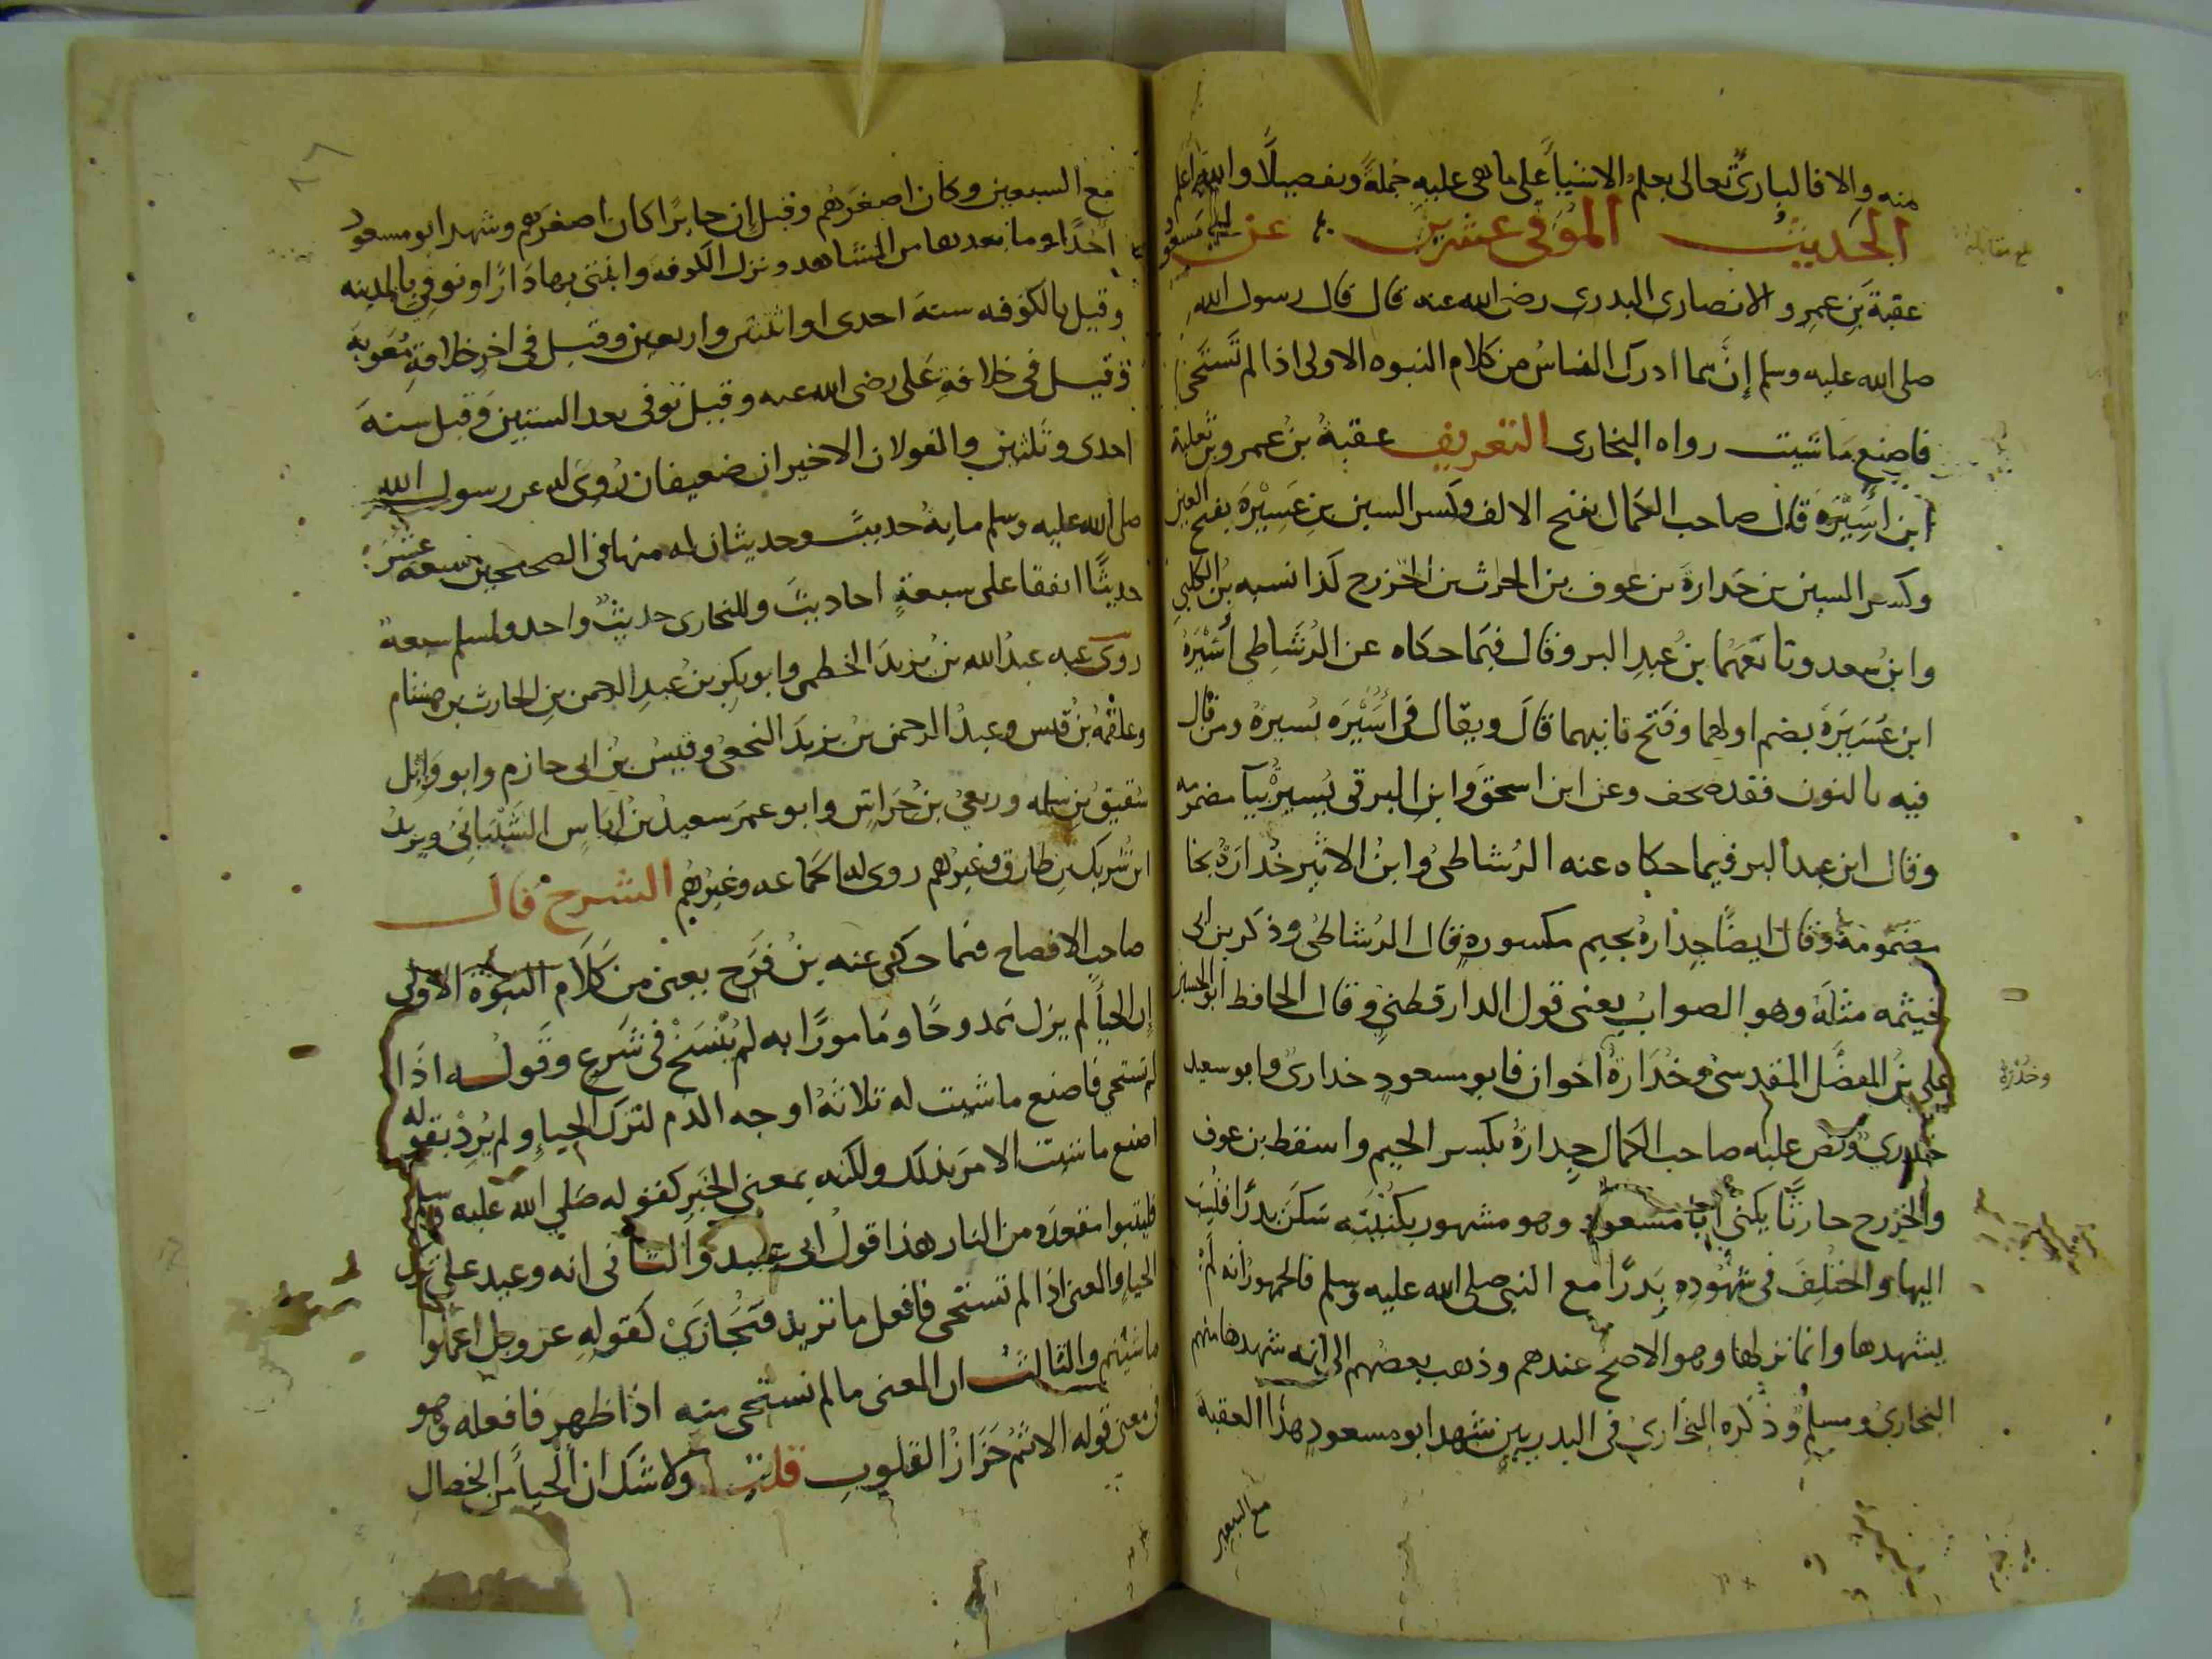 منه والا فالبارئ تعالى يعلم الاشياء على ما هي عليه جملةً وتفصيلًا والله اعلم
الحديث الموفي عشرين عن ابي مسعود
عقبة بن عمرو الانصاري البدري رضي الله عنه قال قال رسول الله
صلى الله عليه وسلم إن مما ادرك الناس من كلام النبوه الاولى اذا لم تستحي
فاصنع ما شيت رواه البخاري التعريف عقبة بن عمرو بن ثعلبة
ابن أسيرة قال صاحب الكمال بفتح الالف وكسر السين بن عسيرة بفتح العين
وكسر السين بن جدارة بن عوف بن الحرث بن الخزرج كذا نسبه بن الكلبي
وابن سعد وتابعهما بن عبد البر وقال فيما حكاه عن الرشاطي أسيرة
ابن عسيرة بضم اولهما وفتح ثانيهما قال ويقال في أسيره يسيرة ومن قال
فيه بالنون فقد صحف وعن ابن اسحق وابن البرقي يسير بيآ مضمومه
وقال ابن عبد البر فيما حكاه عنه الرشاطي وابن الاثير خدارة بخا
مضمومة وقال ايضًا جدارة بجيم مكسورة قال الرشاطي وذكر بن ابي
خيثمه مثله وهو الصواب يعني قول الدارقطني وقال الحافظ ابو الحسن
علي بن المفضل المقدسي وخدارة اخوان فابو مسعود خداري وابو سعيد
وخدرة
خدري ونص عليه صاحب الكمال جدارة بكسر الجيم واسقط بن عوف
والخزرج حارثًا يكنى أبا مسعود وهو مشهور بكنيته سكن بدرًا فنسب
اليها واختلف في شهوده بدرًا مع النبي صلى الله عليه وسلم فالجمهور انه لم
يشهدها وانما نزلها وهو الاصح عندهم وذهب بعضهم الى انه شهدها منهم
البخاري ومسلم وذكره البخاري في البدريين شهد ابو مسعود هذا العقبة
مع السبعين
مع السبعين وكان اصغرهم وقيل إن جابرًا كان اصغرهم وشهد ابو مسعود
أحدًا وما بعدها من المشاهد ونزل الكوفة وابتنى بها دارًا وتوفي بالمدينه
وقيل بالكوفه سنة احدى او اثنتين واربعين وقيل في اخر خلافة معوية
وقيل في خلافة علي رضي الله عنه وقيل توفي بعد الستين وقيل سنة
احدى وثلثين والقولان الاخيران ضعيفان روى له عن رسول الله
صلى الله عليه وسلم مايةُ حديثٍ وحديثان له منها في الصحيحين سبعة عشر
حديثًا اتفقا على سبعةٍ احاديث وللبخاري حديثٌ واحد ولمسلم سبعة
روى عنه عبدُ الله بن يزيد الخطمي وابو بكر بن عبد الرحمن بن الحارث بن هشام
وعلقمة بن قيس وعبدُ الرحمن بن يزيد النخعي وقيس بن ابي حازم وابو وايل
شقيق بن سلمه وربعي بن حراش وابو عمر سعيد بن اياس الشيباني ويزيد
ابن شريك بن طارق وغيرهم روى له الجماعه وغيرهم الشرح قال
صاحب الافصاح فيما حكى عنه بن فرح يعني من كلام النبوة الاولى
إن الحيآ لم يزل ممدوحًا ومامورًا به لم يُنسخ في شرعٍ وقوله اذا
لم تستحي فاصنع ما شيت له ثلاثة اوجه الذم لترك الحياء ولم يُرد بقوله
اصنع ما شيت الامر بذلك ولكنه بمعنى الخبر كقوله صلي الله عليه وسلم
فليتبوا مقعده من النار هذا قول ابي عبيد والثاني انه وعيد على ترك
الحياء والمعنى اذا لم تستحي فافعل ما تريد فتجازي كقوله عز وجل اعملوا
ما شيتم والثالث ان المعنى ما لم تستحي منه اذا ظهر فافعله وهو
في معنى قوله الاثم حزاز القلوب قلت ولا شك ان الحيآ من الخصال